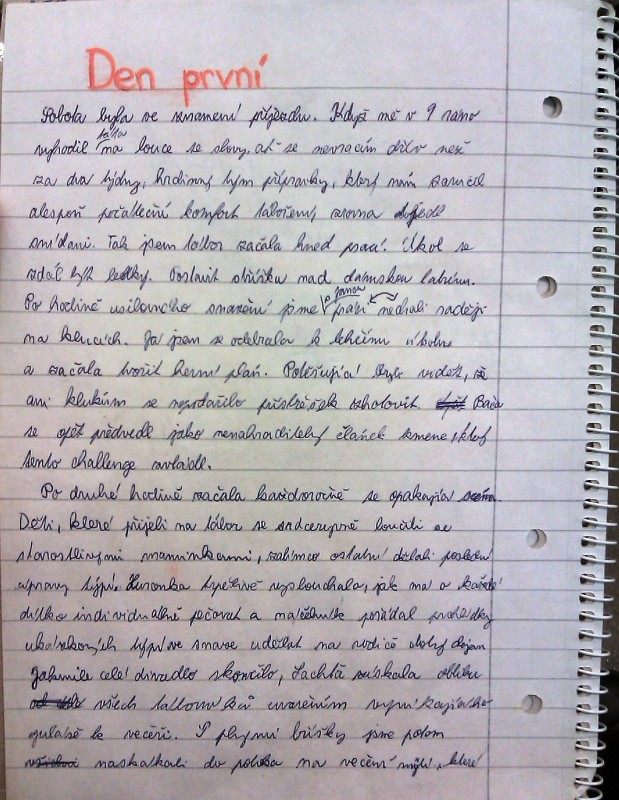 Den první
Sobota byla ve znamení příjezdu. Když mě v 9 ráno
vyhodil táta na louce se slovy, ať se nevracím dřív než
za dva týdny, hrdinný tým přípravky, který nám zaručil
alespoň počáteční komfort táboření, zrovna dojedl
snídani. Tak jsem tábor začala hned prací. Úkol se
zdál být lehký. Postavit stříšku nad dámskou latrínu.
Po hodině usilovného snažení jsme s Janou nechali naději
na klucích. Já jsem se odebrala k lehčímu úkolu
a začala tvořit herní plán. Potěšující bylo vidět, že
ani klukům se nepodařilo přístřešek zhotovit. Bača
se opět předvedl jako nenahraditelný článek kmene, který
tento challenge zvládl.
Po druhé hodině začala každoročně se opakující scéna.
Děti, které přijeli na tábor se srdceryvně loučili se
starostlivými maminkami, zatímco ostatní dělali poslední
úpravy týpí. Huronka trpělivě vyslouchala, jak má o každé
dítko individuálně pečovat a náčelník pořádal prohlídky
ukázkových týpí ve snaze udělat na rodiče dobrý dojem
Jakmile celé divadlo skončilo, Šachta získala oblibu
všech táborníků uvařením vynikajícího
guláše k večeři. S plnými bříšky jsme potom
naskákali do potoka na večerní mytí, které